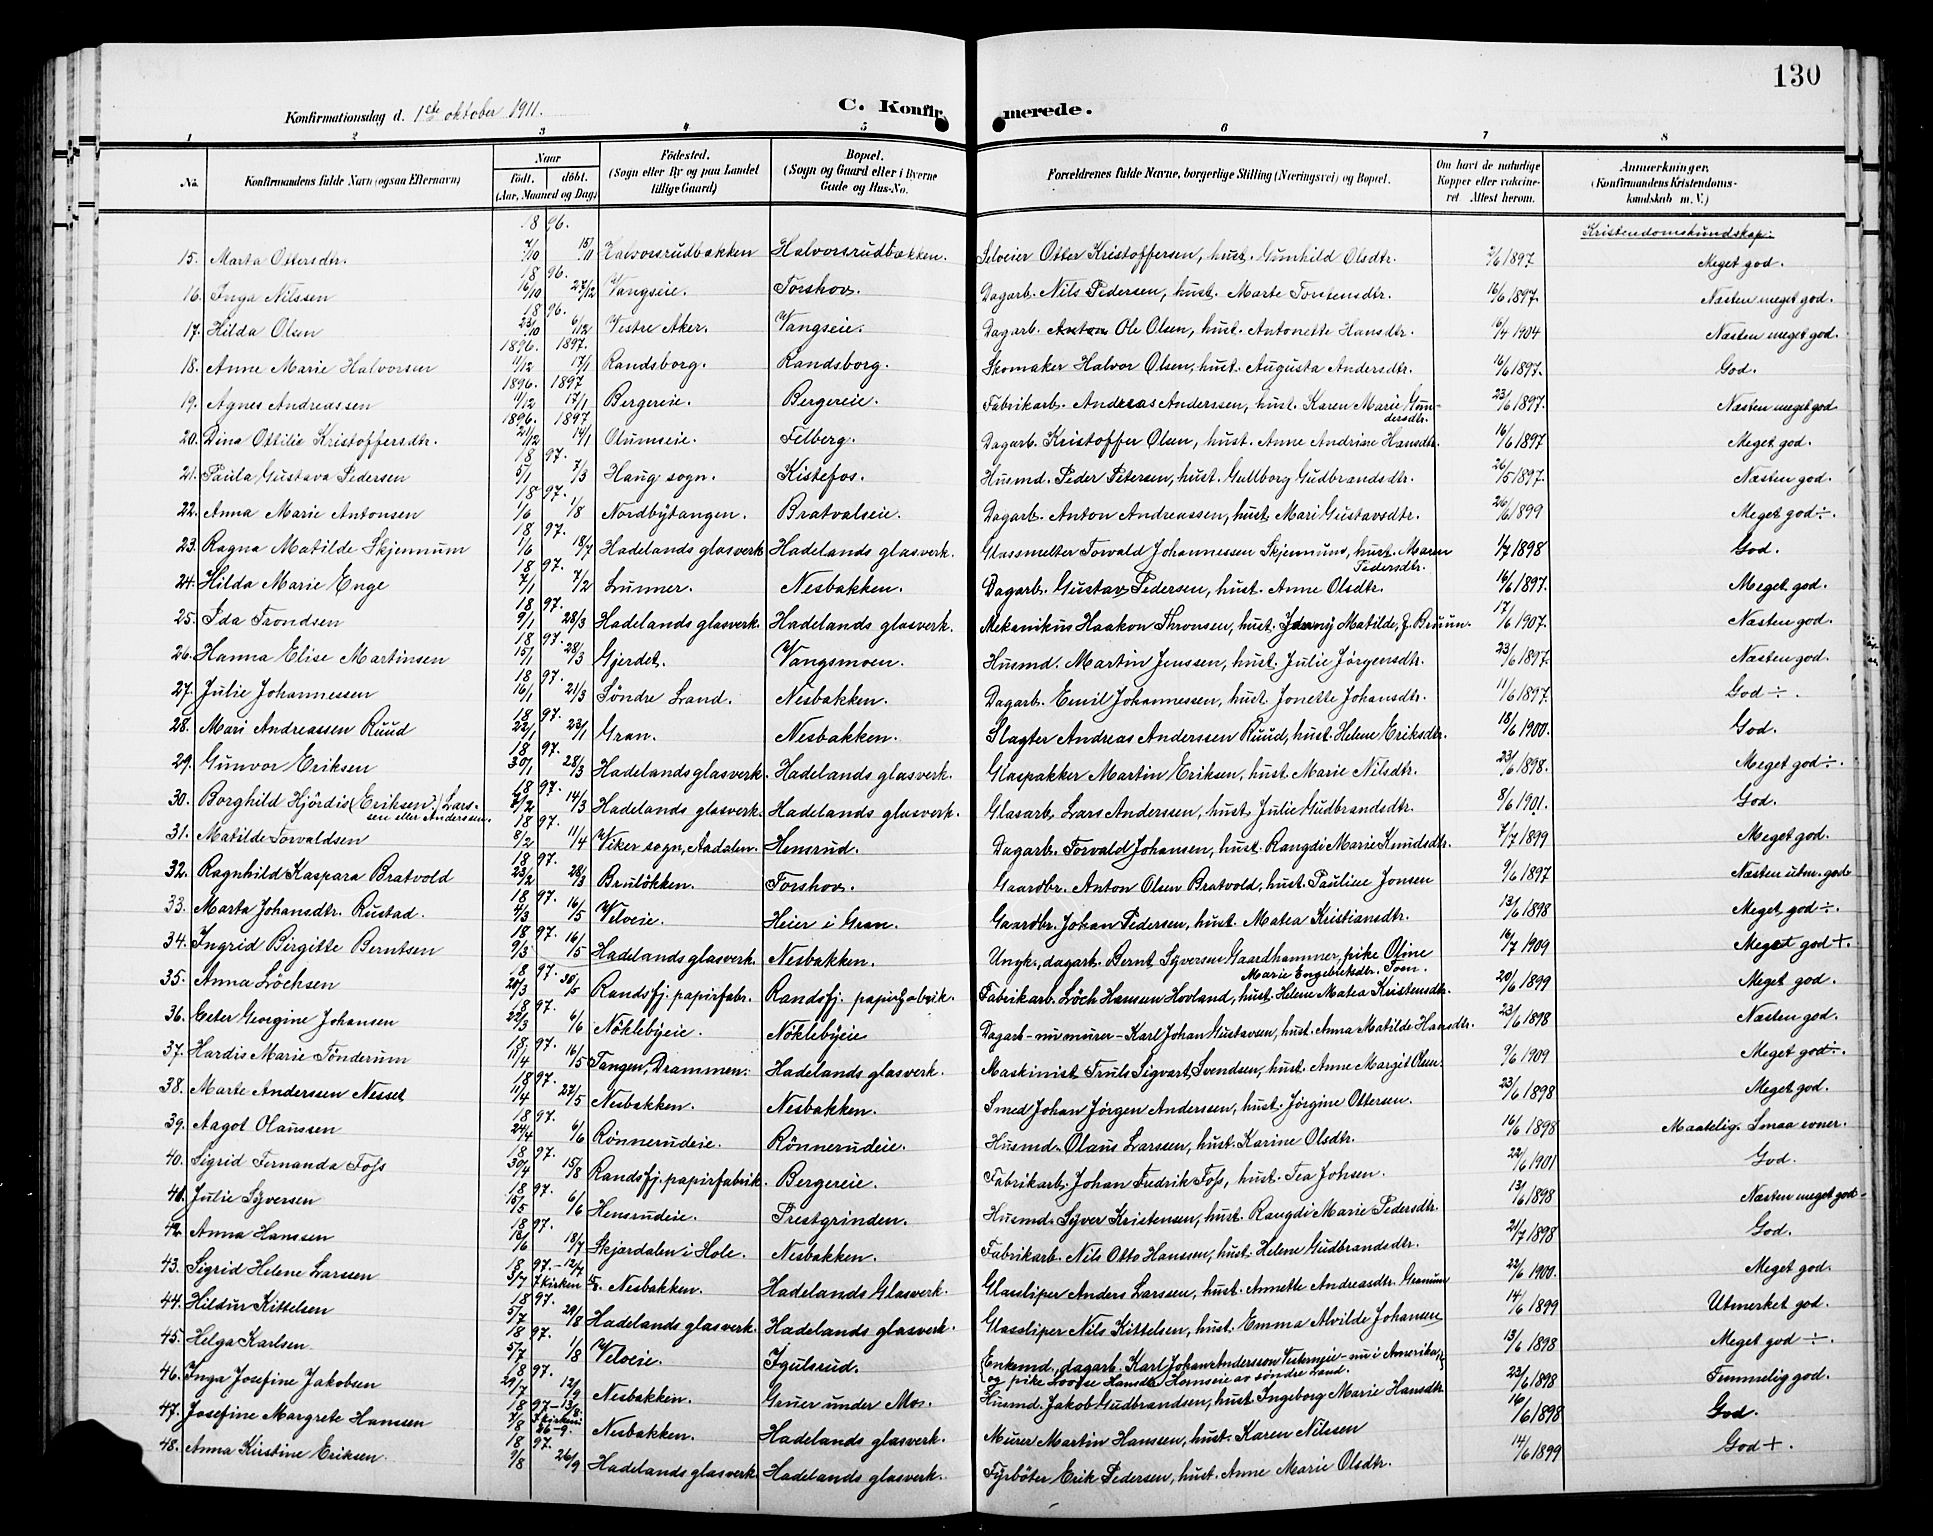 130
Konfirmationsdag d. 1ste oktober 1911.
C. Konfirmerede.
1 2 3 4 5 6 7 8
No. Konfirmandens fulde Navn (ogsaa Efternavn) Naar født. døbt. (Aar, Maaned og Dag) Födested. (Sogn eller By og paa Landet tillige Gaard) Bopæl. (Sogn og Gaard eller i Byerne Gade og Hus-No. Forældrenes fulde Navne, borgerlige Stilling (Næringsvei) og Bopæl. Om havt de naturlige Kopper eller vakcineret Attest herom. Anmærkninger. (Konfirmandens Kristendomskundskab m. V.)
Kristendomskundskap:
15. Marta Ottersdtr. 1896. 7/10 15/11 Halvorsrudbakken Halvorsrudbakken. Selveier Otter Kristoffersen, hust. Gunhild Olsdtr. 2/6 1897 Meget god.
16. Inga Nilssen 1896. 16/10 27/12 Vangseie. Torshov. Dagarb. Nils Pedersen, hust. Marte Tostensdtr. 16/6 1897. Næsten meget god.
17. Hilda Olsen 1896. 23/10 6/12 Vestre Aker. Vangseie. Dagarb. Ole Olsen, hust. Antonette Hansdtr. 16/4 1904 Næsten meget god.
18. Anne Marie Halvorsen 1896. 1897. 11/12 17/1 Randsborg. Randsborg. Skomaker Halvor Olsen, hust. Augusta Andersdtr. 16/6 1897. God.
19. Agnes Andreassen 1896. 1897 11/12 17/1 Bergereie. Bergereie. Fabrikarb. Andreas Anderssen, hust. Karen Marie Gundersdtr. 23/6 1897. Næsten meget god
20. Dina Ottilie Kristoffersdtr. 1896. 1897 21/12 14/1 Olumseie. Felberg. Dagarb. Kristoffer Olsen, hust. Anne Andrine Hansdtr. 16/6 1897 Meget god.
21. Paula Gustava Pedersen 1897. 5/1 7/3 Haug sogn. Kistefos. Husmd. Peder Petersen, hust. Gullborg Gudbrandsdtr. 26/5 1897. Næsten god.
22. Anna Marie Antonsen 1897. 1/6 1/8 Nordbytangen. Bratvalseie. Dagarb. Anton Andreassen, hust. Mari Gustavsdtr. 26/6 1899 Meget god ÷.
23. Ragna Matilde Skjennum 1897. 1/6 18/7 Hadelands glasverk Hadelands glasverk. Glassmelter Torvald Johannessen Skjennum, hust. Maren Pedersdtr. 1/7 1898 God.
24. Hilda Marie Enge 1897. 7/1 7/2 Lunner. Nesbakken. Dagarb. Gustav Pedersen, hust. Anne Olsdtr. 16/6 1897. Meget god.
25. Ida Trondsen 1897. 9/1 28/3 Hadelands glasverk. Hadelands glasverk. Mekanikus Haakon Thronsen, hust. Jenny Matilde, f. Bruun. 17/6 1907. Næsten god.
26. Hanna Elise Martinsen 1897. 15/1 28/3 Gjerdet. Vangsmoen. Husmd. Martin Jenssen, hust. Julie Jørgensdtr. 23/6 1897. Næsten god.
27. Julie Johannessen 1897. 16/1 21/3 Søndre Land. Nesbakken. Dagarb. Emil Johannessen, hust. Jonette Johansdtr. 11/6 1897. God ÷.
28. Mari Andreassen Ruud 1897. 22/1 23/1 Gran. Nesbakken. Slagter Andreas Anderssen Ruud, hust. Helene Eriksdtr. 18/6 1900. God.
29. Gunvor Eriksen 1897. 30/1 28/3 Hadelands glasverk. Hadelands glasverk. Glaspakker Martin Eriksen, hust. Marie Nilsdtr. 23/6 1898. Meget god ÷.
30. Borghild Hjørdis (Eriksen) Larssen eller Anderssen. 1897. 7/2 14/3 Hadelands glasverk. Hadelands glasverk. Glasarb. Lars Anderssen, hust. Julie Gudbrandsdtr. 8/6 1901. God.
31. Matilde Torvaldsen 1897. 8/2 11/4 Viker sogn, Aadalen. Hensrud. Dagarb. Torvald Johansen, hust. Rangdi Marie Knudsdtr. 7/7 1899 Meget god.
32. Ragnhild Kaspara Bratvold 1897. 23/2 28/3 Bruløkken. Torshov. Gaardbr. Anton Olsen Bratvold, hust. Pauline Jonsen 9/6 1897 Næsten utm. god
33. Marta Johansdtr. Rustad. 1897. 4/3 16/5 Velveie. Heier i Gran. Gaardbr. Johan Pedersen, hust. Matea Kristiansdtr. 13/6 1898 Meget god ÷.
34. Ingrid Birgitte Berntsen 1897. 9/3 16/5 Hadelands glasverk. Nesbakken. Ungk., dagarb. Bernt Syversen Gaardhammer, pike Oline Marie Engebretsdtr. Tom. 16/7 1909 Meget god +.
35. Anna Løchsen 1897. 20/3 30/5 Randsfj. papirfabr. Randsfj. papirfabrik. Fabrikarb. Løch Hansen Hovland, hust. Helene Matea Kristensdtr. 20/6 1899 Meget god.
36. Peter Georgine Johansen 1897. 22/3 6/6 Nøklebyeie. Nøklebyeie Dagarb - nu murer - Karl Johan Gustavsen, hust. Anna Matilde Hansdtr. 23/6 1898 Næsten god.
37. Hardis Marie Tønderum 1897. 11/4 16/5 Tangen, Drammen. Hadelands glasverk. Maskinist Truls Sigvart Svendsen, hust. Anne Margit Olsen. 9/6 1909 Meget god ÷.
38. Marte Anderssen Nesset 1897. 11/4 27/5 Nesbakken. Nesbakken. Smed Johan Jørgen Anderssen, hust. Jørgine Ottersen. 23/6 1898 Meget god.
39. Aagot Olaussen 1897. 24/4 6/6 Rønnerudeie. Rønnerudeie. Husmd. Olaus Larssen, hust. Karine Olsdtr. 16/6 1898 Maatelig. Smaa evner.
40. Sigrid Fernanda Foss 1897. 30/4 15/8 Randsfj. papirfabrik. Bergereie. Fabrikarb. Johan Fredrik Foss, hust. Tea Johsen. 22/6 1901 God.
41. Julie Syversen 1897. 15/5 6/6 Hensrudeie. Prestgrinden. Husmd. Syver Kristensen, hust. Rangdi Marie Pedersdtr. 13/6 1898 Næsten meget god.
42. Anna Hanssen 1897. 16/6 18/7 Skjærdalen i Hole. Nesbakken. Fabrikarb. Nils Otto Hanssen, hust. Helene Gudbrandsdtr. 21/7 1898 God.
43. Sigrid Helene Larssen 1897. 3/7 - 12/7 I kirken Nesbakken. Hadelands Glasverk. Glassliper Anders Larssen, hust. Annette Andreasdtr. Granum 22/6 1900. Meget god.
44. Hildur Kittelsen 1897. 5/7 29/8 Hadelands glasverk. Hadelands glasverk. Glassliper Nils Kittelsen, hust. Emma Alvilde Johansen 14/6 1899 Utmerket god.
45. Helga Karlsen 1897. 5/7 1/8 Velveie. Igulsrud. Enkemd. dagarb. Karl Johan Anderssen Vestern̸eie - nu i Amerika, og pike Lovise Hansdtr. Homseie av søndre Land. 13/6 1898 Meget god ÷.
46. Inga Josefine Jakobsen 1897. 29/7 12/9 Nesbakken. Gruer under Mo. Husmd. Jakob Gudbrandsen, hust. Ingeborg Marie Hansdtr 23/6 1898 Temmelig god.
47. Josefine Margrete Hanssen 1897 - 13/8. 7/8 I kirken: 26-9. Nesbakken. Hadelands glasverk. Murer Martin Hanssen, hust. Karen Nilssen 16/6 1898 God.
48. Anna Kirstine Eriksen. 1897. 9/8 26/9 Hadelands glasverk Hadelands glasverk. Fyrbøter Erik Pedersen, hust. Anne Marie Olsdtr. 14/6 1899 God +.